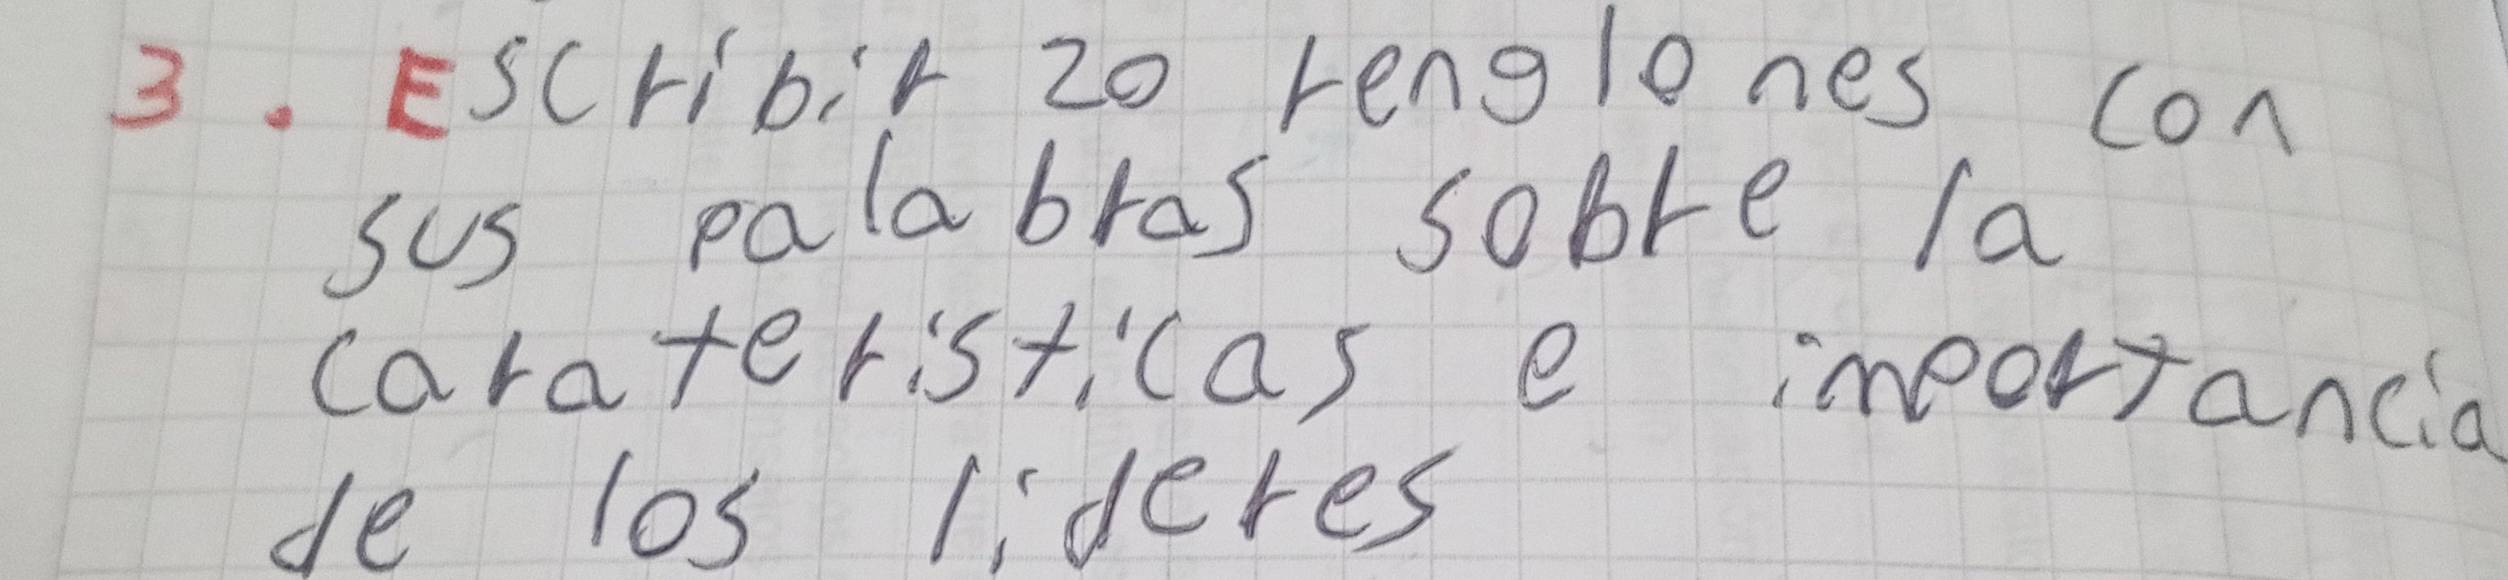 3. Escribir 20 renglones con
sus palabras sobre la
carateristicas e importancia
de los lideres